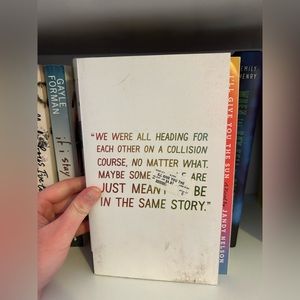 GAYLE
FORMAN
if i stay
"WE WERE ALL HEADING FOR
EACH OTHER ON A COLLISION
COURSE, NO MATTER WHAT.
MAYBE SOME ARE
JUST MEANT BE
IN THE SAME STORY."
I'LL GIVE YOU THE SUN
JANDY NELSON
EMILY
HENRY